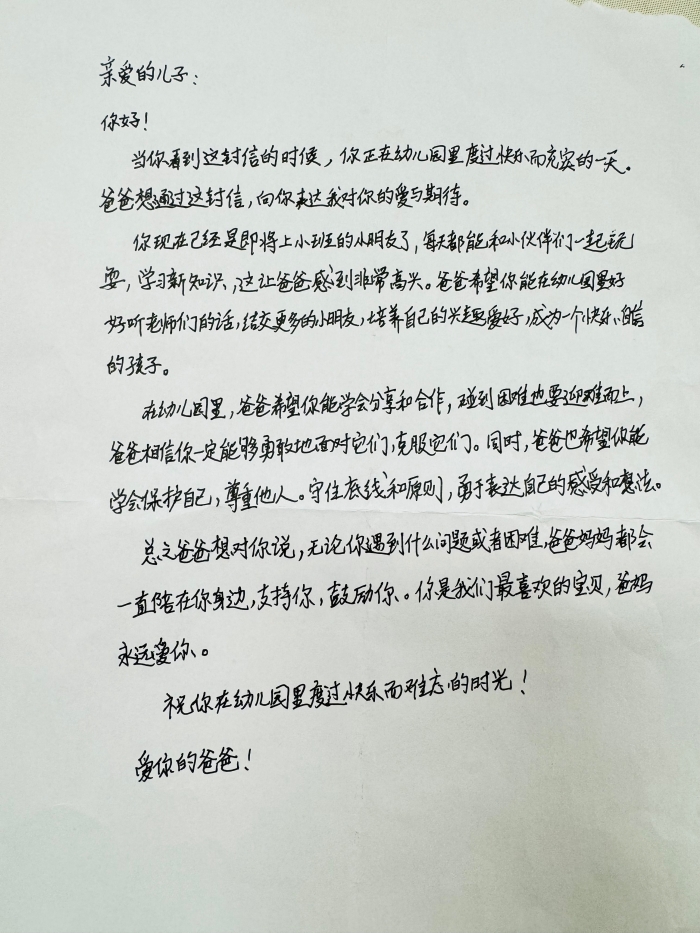 亲爱的儿子：
你好！
当你看到这封信的时候，你正在幼儿园里度过快乐而充实的一天。
爸爸想通过这封信，向你表达我对你的爱与期待。
你现在已经是即将上小班的小朋友了，每天都能和小伙伴们一起玩
耍，学习新知识，这让爸爸感到非常高兴。爸爸希望你能在幼儿园里好
好听老师们的话，结交更多的小朋友，培养自己的兴趣爱好，成为一个快乐、自信
的孩子。
在幼儿园里，爸爸希望你能学会分享和合作，碰到困难也要迎难而上，
爸爸相信你一定能够勇敢地面对它们，克服它们。同时，爸爸也希望你能
学会保护自己，尊重他人。守住底线和原则，勇于表达自己的感受和想法。
总之爸爸想对你说，无论你遇到什么问题或者困难，爸爸妈妈都会
一直陪在你身边，支持你，鼓励你。你是我们最喜欢的宝贝，爸妈
永远爱你。
祝你在幼儿园里度过快乐而难忘的时光！
爱你的爸爸！